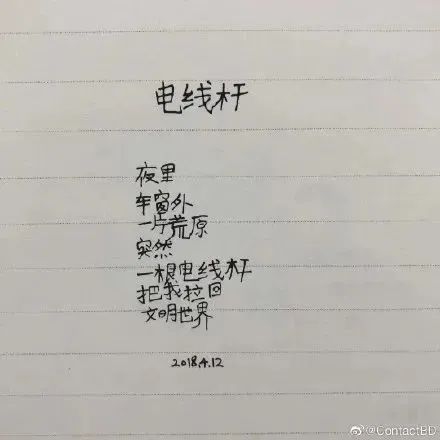 电线杆
夜里
车窗外
一片荒原
突然
一根电线杆
把我拉回
文明世界
2018.4.12
@ContactBD